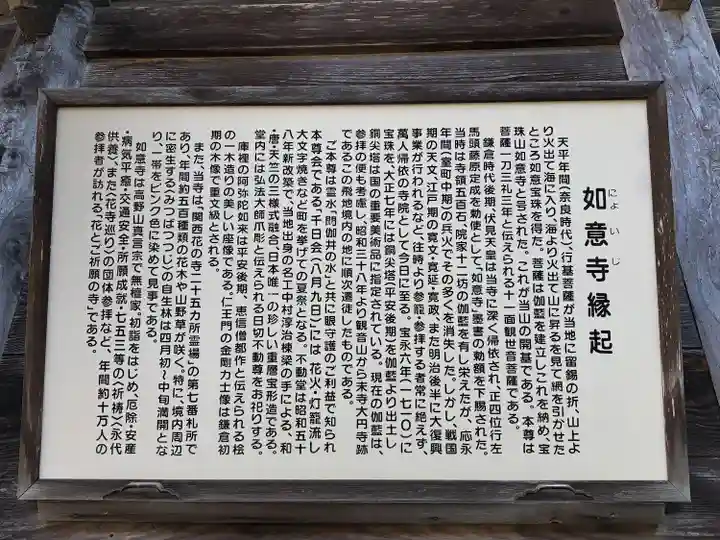 にょいじ
如意寺縁起
天平年間(奈良時代)、行基菩薩が当地に留錫の折、山上よ
り火出て海に入り、海より火出て山に昇るを見て網を引かせた
ところ如意宝珠を得た。菩薩は伽藍を建立しこれを納め、宝
珠山如意寺と号された。これが当山の開基である。本尊は
菩薩一刀三礼三年と伝えられる十一面観世音菩薩である。
鎌倉時代後期、伏見天皇は当寺に深く帰依され、正四位行左
馬頭藤原定成を勅使として、「如意寺」墨書の勅額を下賜された。
当時は寺領五百石、院家十二坊の伽藍を有し栄えたが、応永
年間(室町中期)の兵火でその多くを消失した。しかし、戦国
期の天文、江戸期の寛文・寛延・寛政、また明治後半に大復興
事業が行われるなど、往時より参籠・参拝する者常に絶えず、
萬人帰依の寺院として今日に至る。宝永六年(一七一〇)に
宝珠を、大正七年には鐧尖塔(平安後期)を伽藍より出土し
鐧尖塔は国の重要美術品に指定されている。現在の伽藍は、
参拝の便も考慮し、昭和三十八年より観音山から末寺大円寺跡
であるこの飛地境内の地に順次遷徒したものである。
ご本尊は霊水「閼伽井の水」と共に眼守護のご利益で知られ
本尊会である、「千日会(八月九日)」には花火・灯籠流し
大文字焼きなど町を挙げての夏祭となる。不動堂は昭和五十
八年新改築で、当地出身の名工中村淳治棟梁の手による、和
・唐・天竺の三様式融合、日本唯一の珍しい重層宝形造である。
堂内には弘法大師爪彫と伝えられる日切不動尊をお祀りする。
庫裡の阿弥陀如来は平安後期、恵信僧都作と伝えられる桧
の一木造りの美しい座像である。仁王門の金剛力士像は鎌倉初
期の木像で重文級とされる。
また、当寺は、「関西花の寺二十五カ所霊場」の第七番札所で
あり、年間約五百種類の花木や山野草が咲く。特に、境内周辺
に密生する〈みつばつつじ〉の自生林は四月初~中旬満開とな
り、一帯をピンク色に染めて見事である。
如意寺は高野山真言宗で無檀家、初詣をはじめ、厄除・安産
・病気平癒・交通安全・所願成就・七五三等の〈祈祷〉〈永代
供養〉、また〈花寺巡り〉の団体参拝など、年間約十万人の
参拝者が訪れる、『花とご祈願の寺』である。